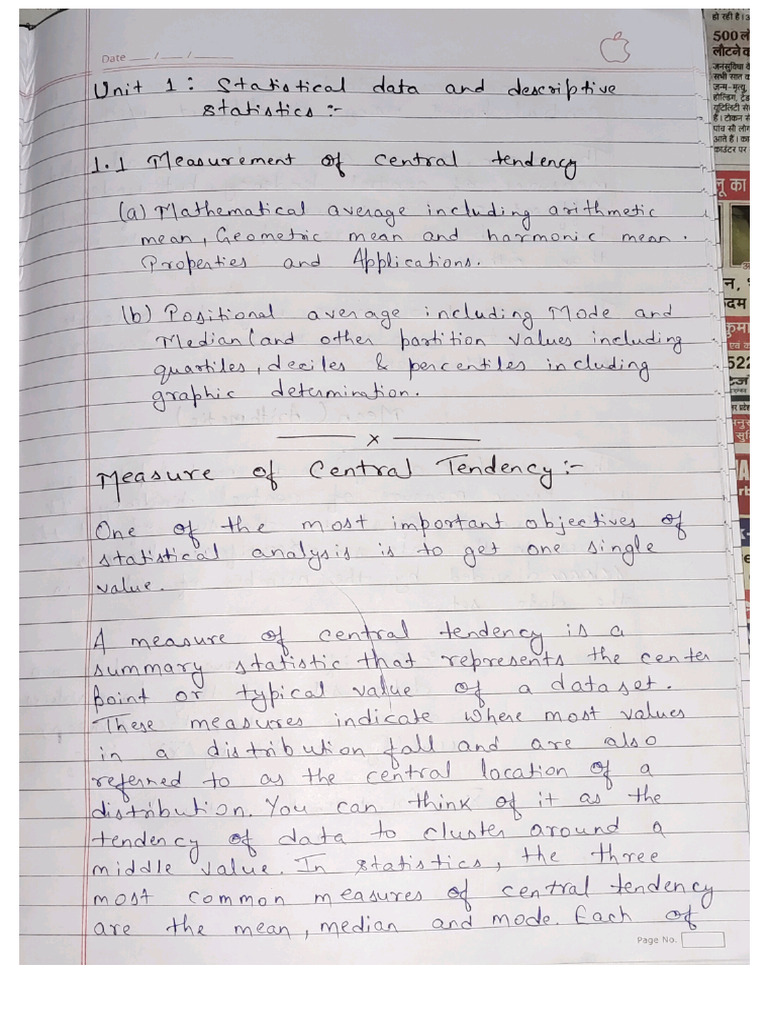 Date __/__/____
Unit 1: Statistical data and descriptive
statistics:-
1.1 Measurement of central tendency
(a) Mathematical average including arithmetic
mean, Geometric mean and harmonic mean.
Properties and Applications.
(b) Positional average including Mode and
Median (and other partition values including
quartiles, deciles & percentiles including
graphic determination.
x
Measure of Central Tendency:-
One of the most important objectives of
statistical analysis is to get one single
value.
A measure of central tendency is a
summary statistic that represents the center
point or typical value of a dataset.
These measures indicate where most values
in a distribution fall and are also
referred to as the central location of a
distribution. You can think of it as the
tendency of data to cluster around a
middle value. In statistics, the three
most common measures of central tendency
are the mean, median and mode. Each of
Page No.
हो रही है।
500 लो
लौटने व
जनसुविधा
सभी सात
जन्म-मृत्यु
होल्डिंग, ट्रेड
यूटिलिटी से
है। टोकन
पांच सौ लोग
आते हैं। का
काउंटर पर
लू का
न,
दम
कुमा
एवं
522